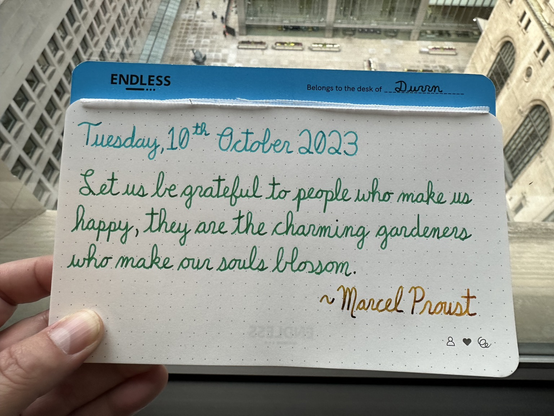 ENDLESS
Belongs to the desk of Durrn
Tuesday, 10th October 2023
Let us be grateful to people who make us
happy, they are the charming gardeners
who make our souls blossom.
~ Marcel Proust
ENDLESS